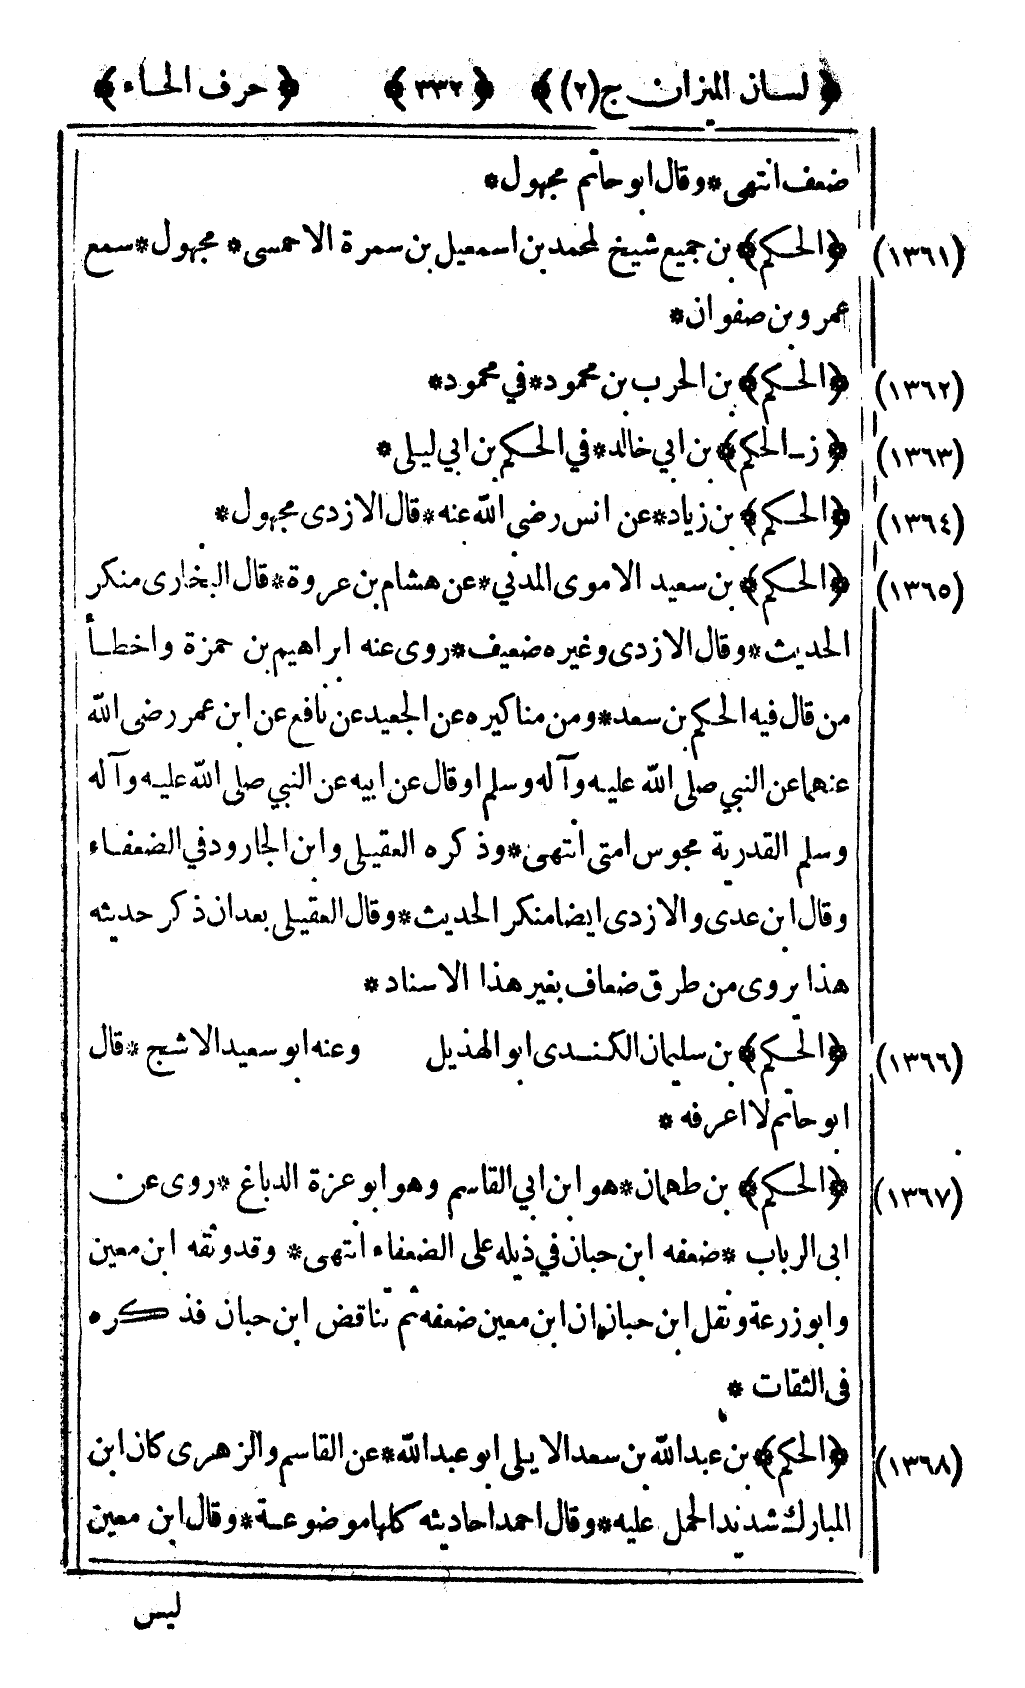 ﴿ لسان الميزان ج(٢) ﴾ ﴿ ٣٣٢ ﴾ ﴿ حرف الحاء ﴾
ضعف انتهى * وقال ابو حاتم مجهول *
(١٣٦١) ﴿ الحكم ﴾ بن جميع شيخ لمحمد بن اسمعيل بن سمرة الاحمسى * مجهول * سمع
عمرو بن صفوان *
(١٣٦٢) ﴿ الحكم ﴾ بن الحرب بن محمود * في محمود *
(١٣٦٣) ﴿ ز ـ الحكم ﴾ بن ابي خالد * في الحكم بن ابي ليلى *
(١٣٦٤) ﴿ الحكم ﴾ بن زياد * عن انس رضي الله عنه * قال الازدى مجهول *
(١٣٦٥) ﴿ الحكم ﴾ بن سعيد الاموى المدني * عن هشام بن عروة * قال البخارى منكر
الحديث * وقال الازدى وغيره ضعيف * روى عنه ابراهيم بن حمزة واخطأ
من قال فيه الحكم بن سعد * ومن مناكيره عن الجعيد عن نافع عن ابن عمر رضى الله
عنهما عن النبي صلى الله عليه وآله وسلم او قال عن ابيه عن النبي صلى الله عليه وآله
وسلم القدرية مجوس امتى انتهى * وذكره العقيلى وابن الجارود في الضعفاء
وقال ابن عدى والازدى ايضا منكر الحديث * وقال العقيلى بعد ان ذكر حديثه
هذا يروى من طرق ضعاف بغير هذا الاسناد *
(١٣٦٦) ﴿ الحكم ﴾ بن سليمان الكندى ابو الهذيل وعنه ابو سعيد الاشج * قال
ابو حاتم لا اعرفه *
(١٣٦٧) ﴿ الحكم ﴾ بن طهمان * هو ابن ابي القاسم وهو ابو عزة الدباغ * روى عن
ابى الرباب * ضعفه ابن حبان في ذيله على الضعفاء انتهى * وقد وثقه ابن معين
وابو زرعة ونقل ابن حبان ان ابن معين ضعفه ثم تناقض ابن حبان فذكره
فى الثقات *
(١٣٦٨) ﴿ الحكم ﴾ بن عبد الله بن سعد الايلى ابو عبد الله * عن القاسم والزهرى كان ابن
المبارك شديد الحمل عليه * وقال احمد احاديثه كلها موضوعة * وقال ابن معين
ليس